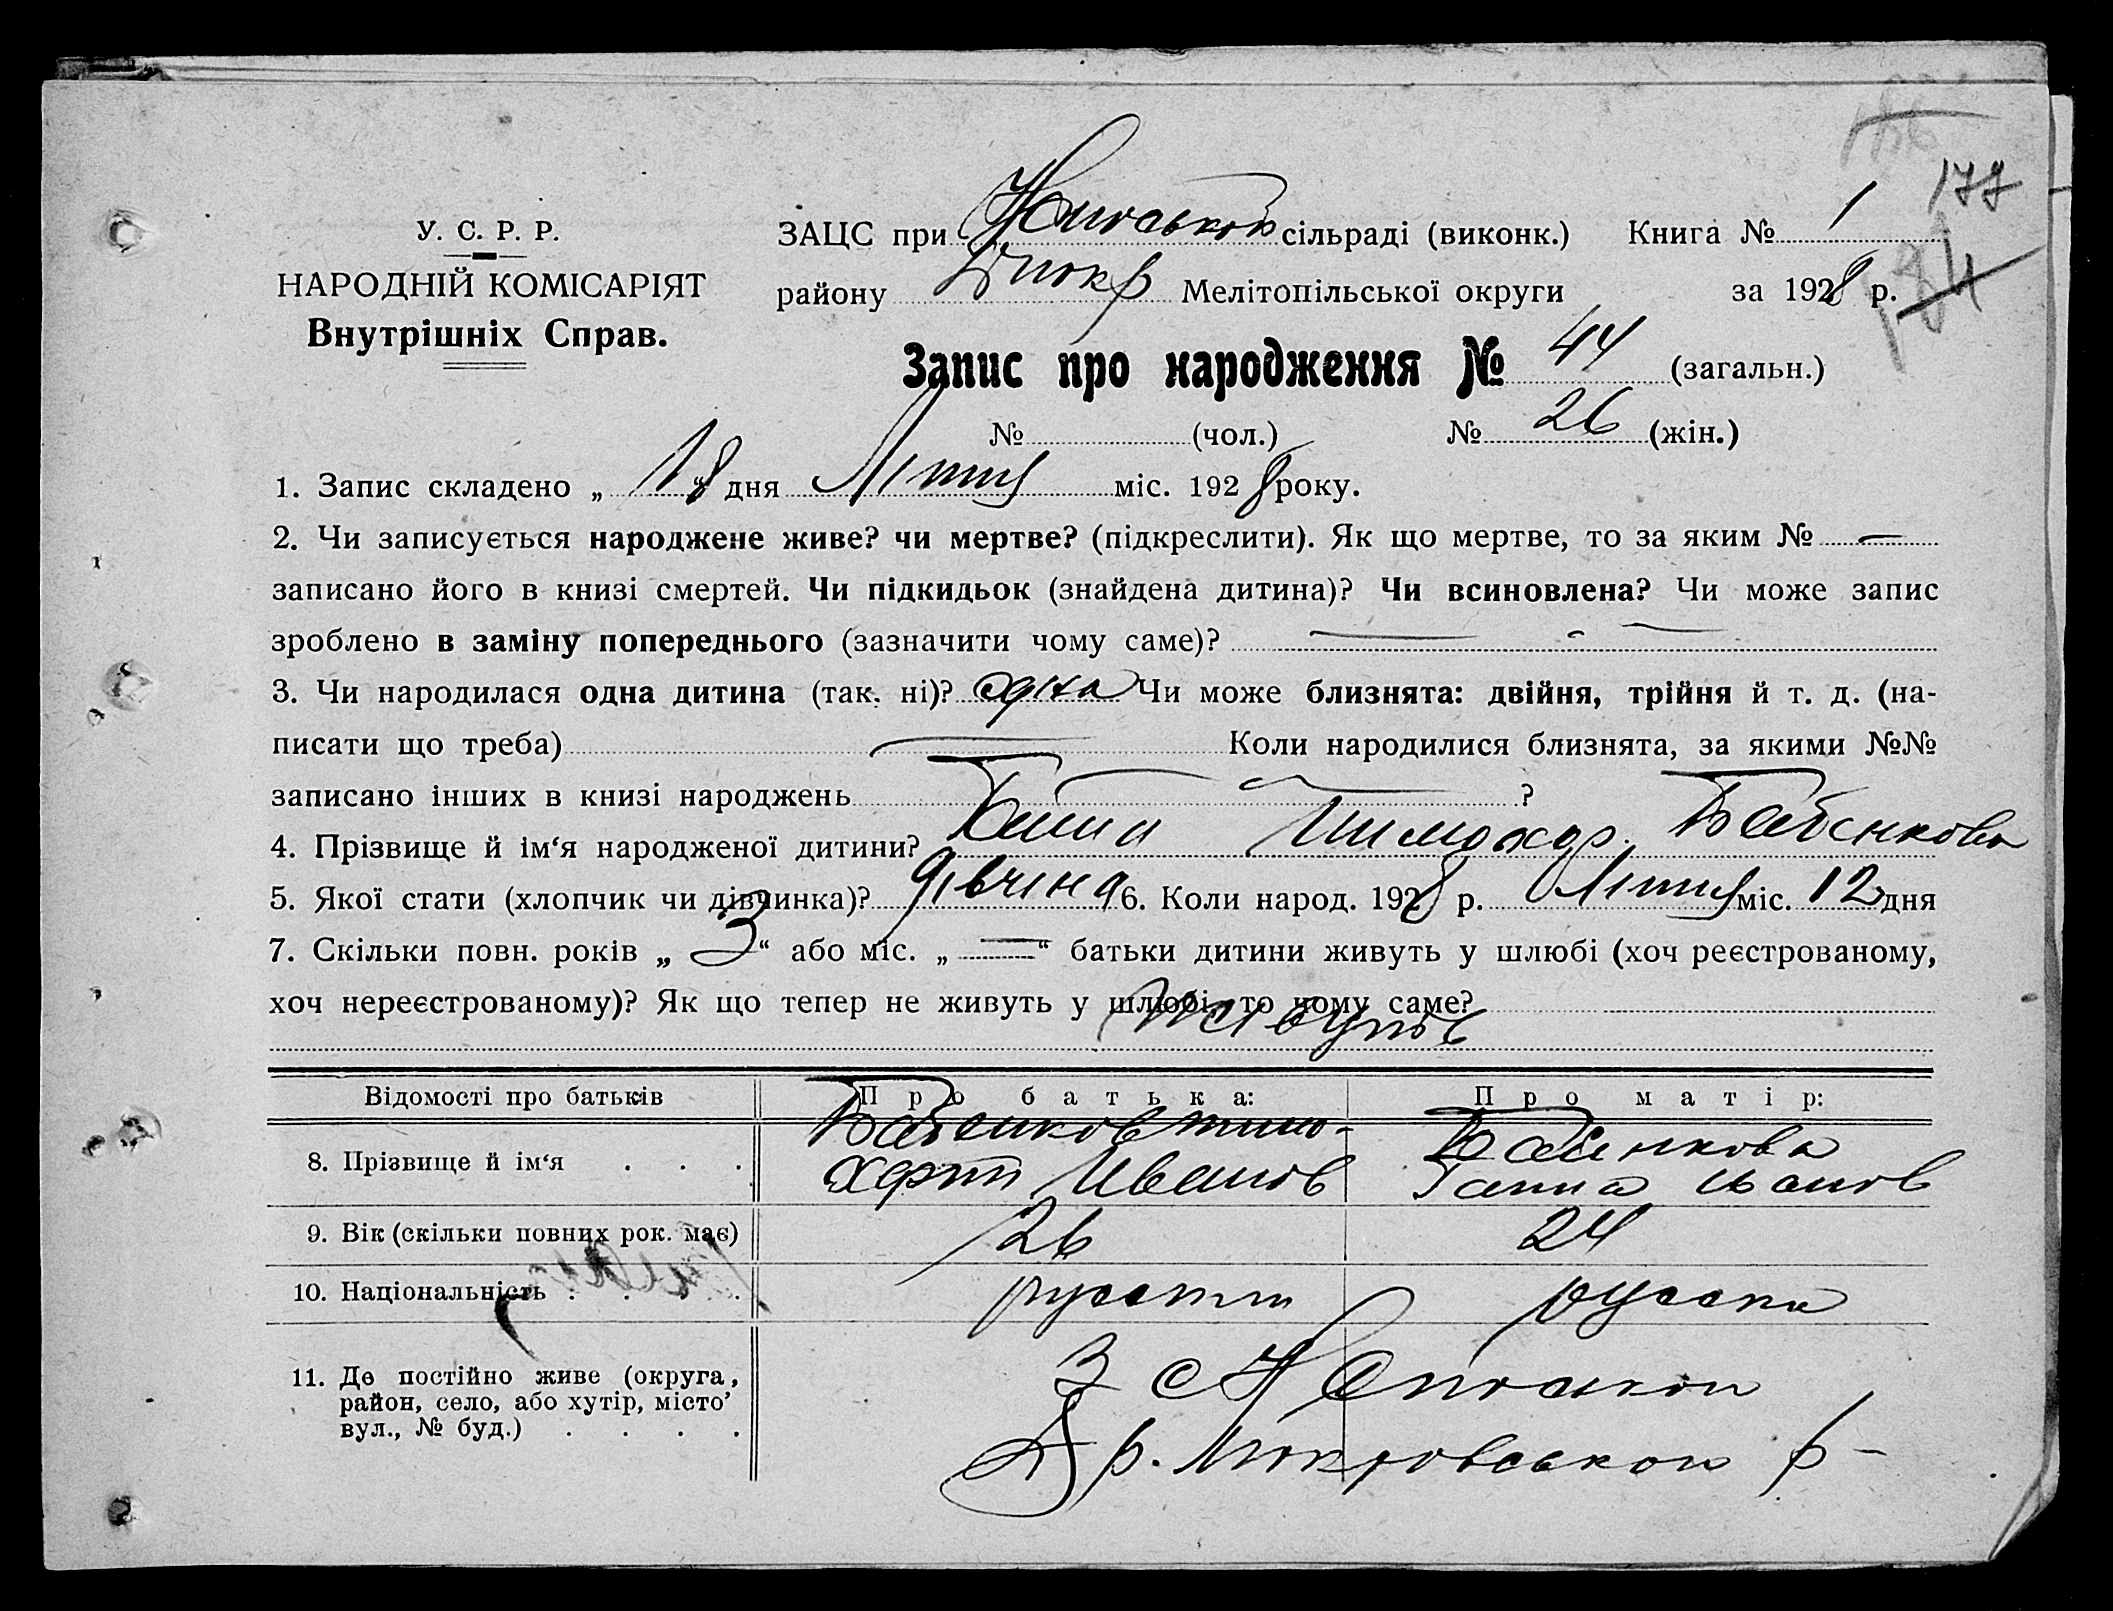 177
У. С. Р. Р.
НАРОДНІЙ КОМІСАРІЯТ
Внутрішніх Справ.
ЗАЦС при сільраді (виконк.) Книга № 1
району Мелітопільської округи за 1928 р.
Запис про народження № 44 (загальн.)
№ (чол.) № 26 (жін.)
1. Запис складено „ 18 “ дня міс. 1928 року.
2. Чи записується народжене живе? чи мертве? (підкреслити). Як що мертве, то за яким № —
записано його в книзі смертей. Чи підкидьок (знайдена дитина)? Чи всиновлена? Чи може запис
зроблено в заміну попереднього (зазначити чому саме)? —
3. Чи народилася одна дитина (так, ні)? одна Чи може близнята: двійня, трійня й т. д. (на-
писати що треба) — Коли народилися близнята, за якими №№
записано інших в книзі народжень — ?
4. Прізвище й ім‘я народженої дитини? Бабенкова
5. Якої стати (хлопчик чи дівчинка)? дівчина 6. Коли народ. 1928 р. міс. 12 дня
7. Скільки повн. років „ 3 “ або міс. „ — “ батьки дитини живуть у шлюбі (хоч реєстрованому,
хоч нереєстрованому)? Як що тепер не живуть у шлюбі, то чому саме?
Відомості про батьків Про батька: Про матір:
8. Прізвище й ім‘я . . . Бабенков Тимо- Бабенкова
Иванов Ганна Иванов
9. Вік (скільки повних рок. має) 26 24
10. Національність : . . . русска
11. Де постійно живе (округа,
район, село, або хутір, місто’
вул., № буд.) . . . .